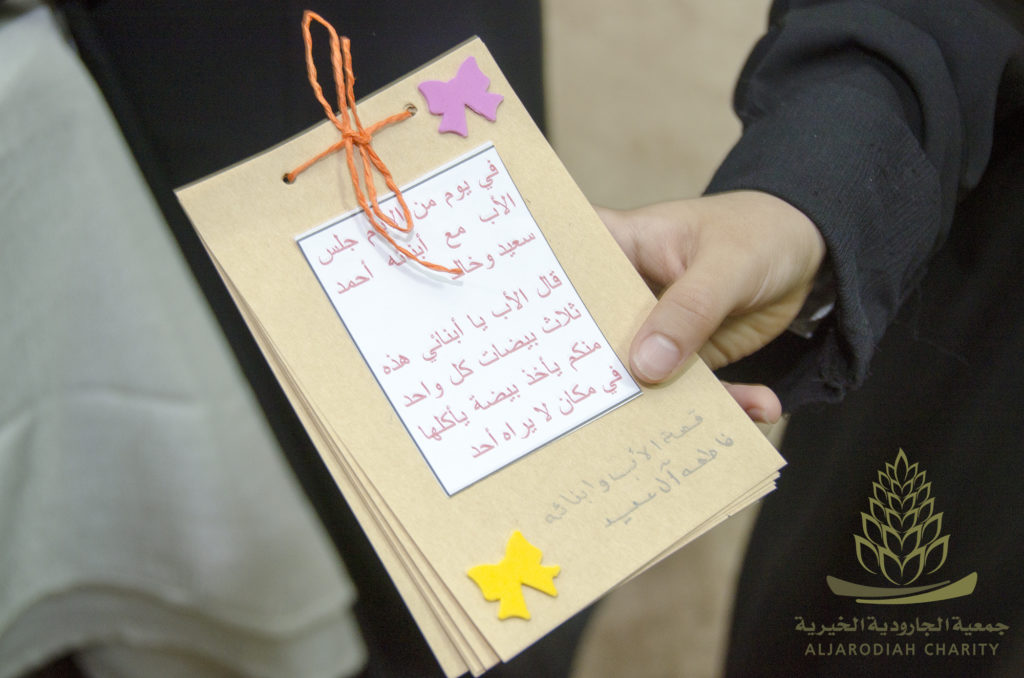 في يوم من الأيام جلس
الأب مع أبنائه أحمد
سعيد وخالد
قال الأب يا أبنائي هذه
ثلاث بيضات كل واحد
منكم يأخذ بيضة يأكلها
في مكان لا يراه أحد
قصة الأب وابنائه
فاطمه آل سعيد
جمعية الجارودية الخيرية
ALJARODIAH CHARITY